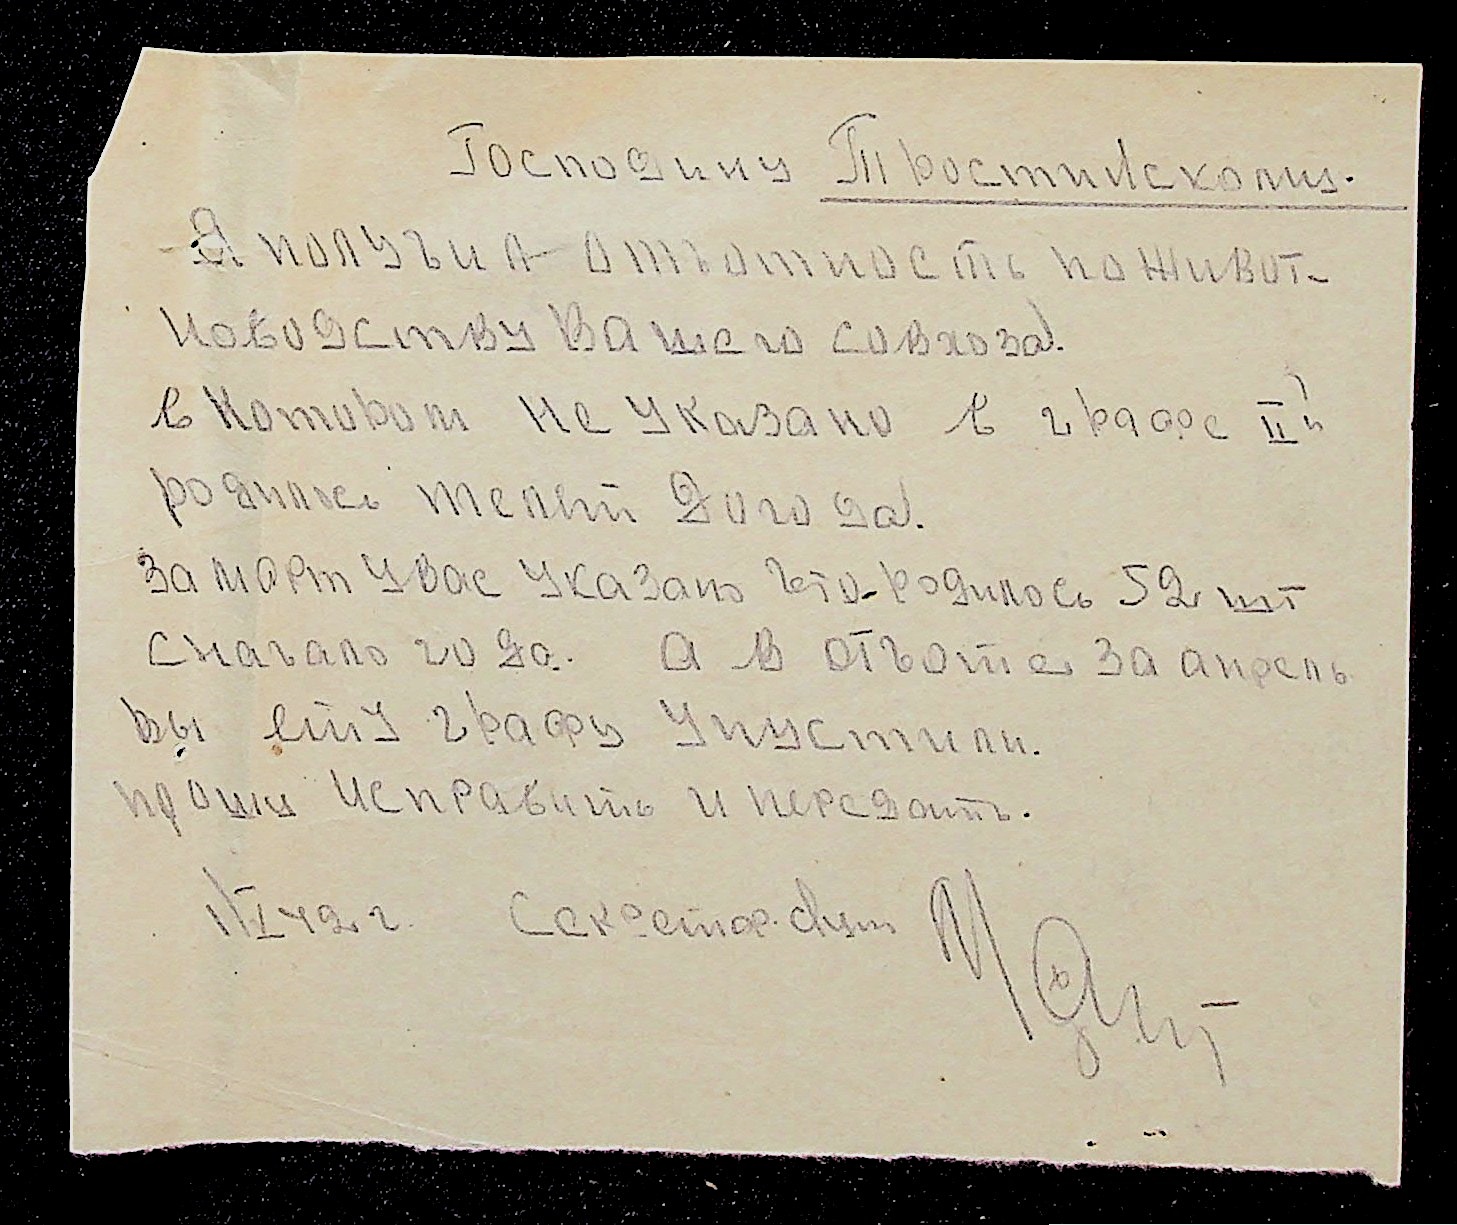 Господину Тростинскому.
Я получил отчотность по живот-
новодству Вашего совхоза.
в котором не указано в графе II й
родилось телят до года.
За март у вас указано что-родилось 52 шт
сначало года. А в отчоте за апрель
вы ету графу упустили.
прошу исправить и передать.
42 г. Секретар.